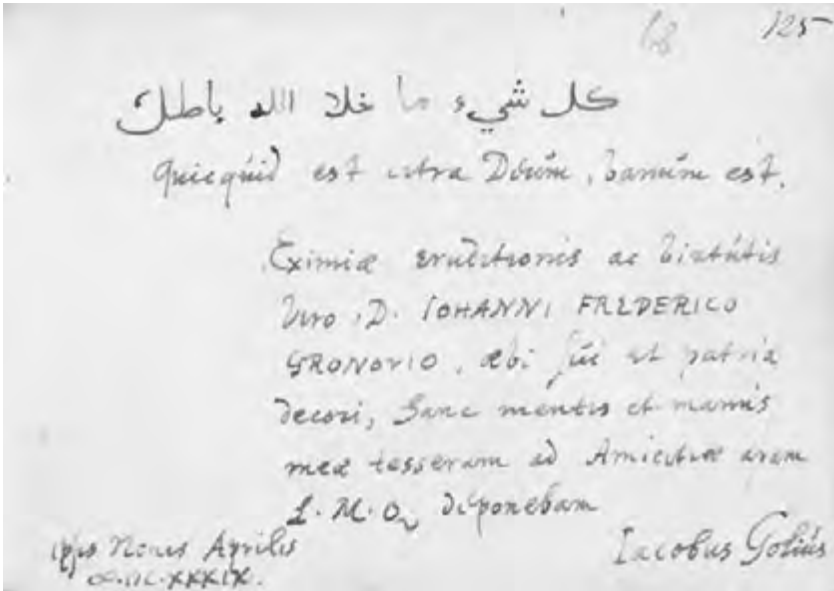 68 125
كل شيء ما خلا الله باطل
Quicquid est citra Deum, vanum est.
Eximiæ eruditionis ac virtutis
Viro, D. IOHANNI FREDERICO
GRONOVIO, ævi sui et patriæ
decori, hanc mentis et manus
meæ tesseram ad Amicitiæ aram
L. M. Q. deponebam
Iacobus Golius
ipsis Nonis Aprilis
XXXIX.